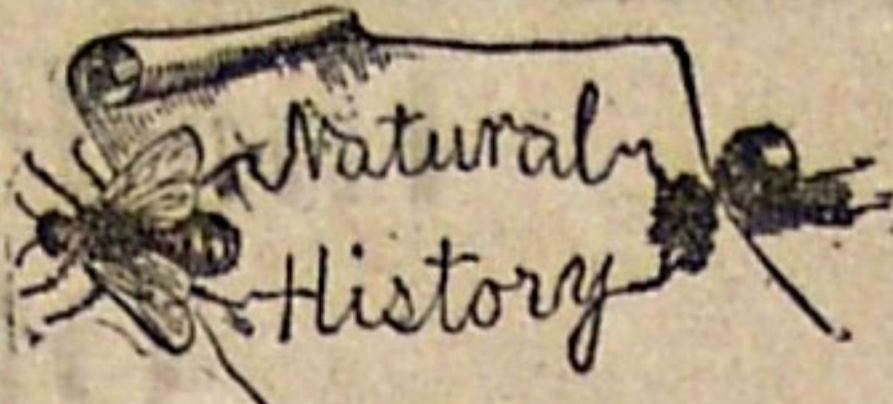 Natural
History